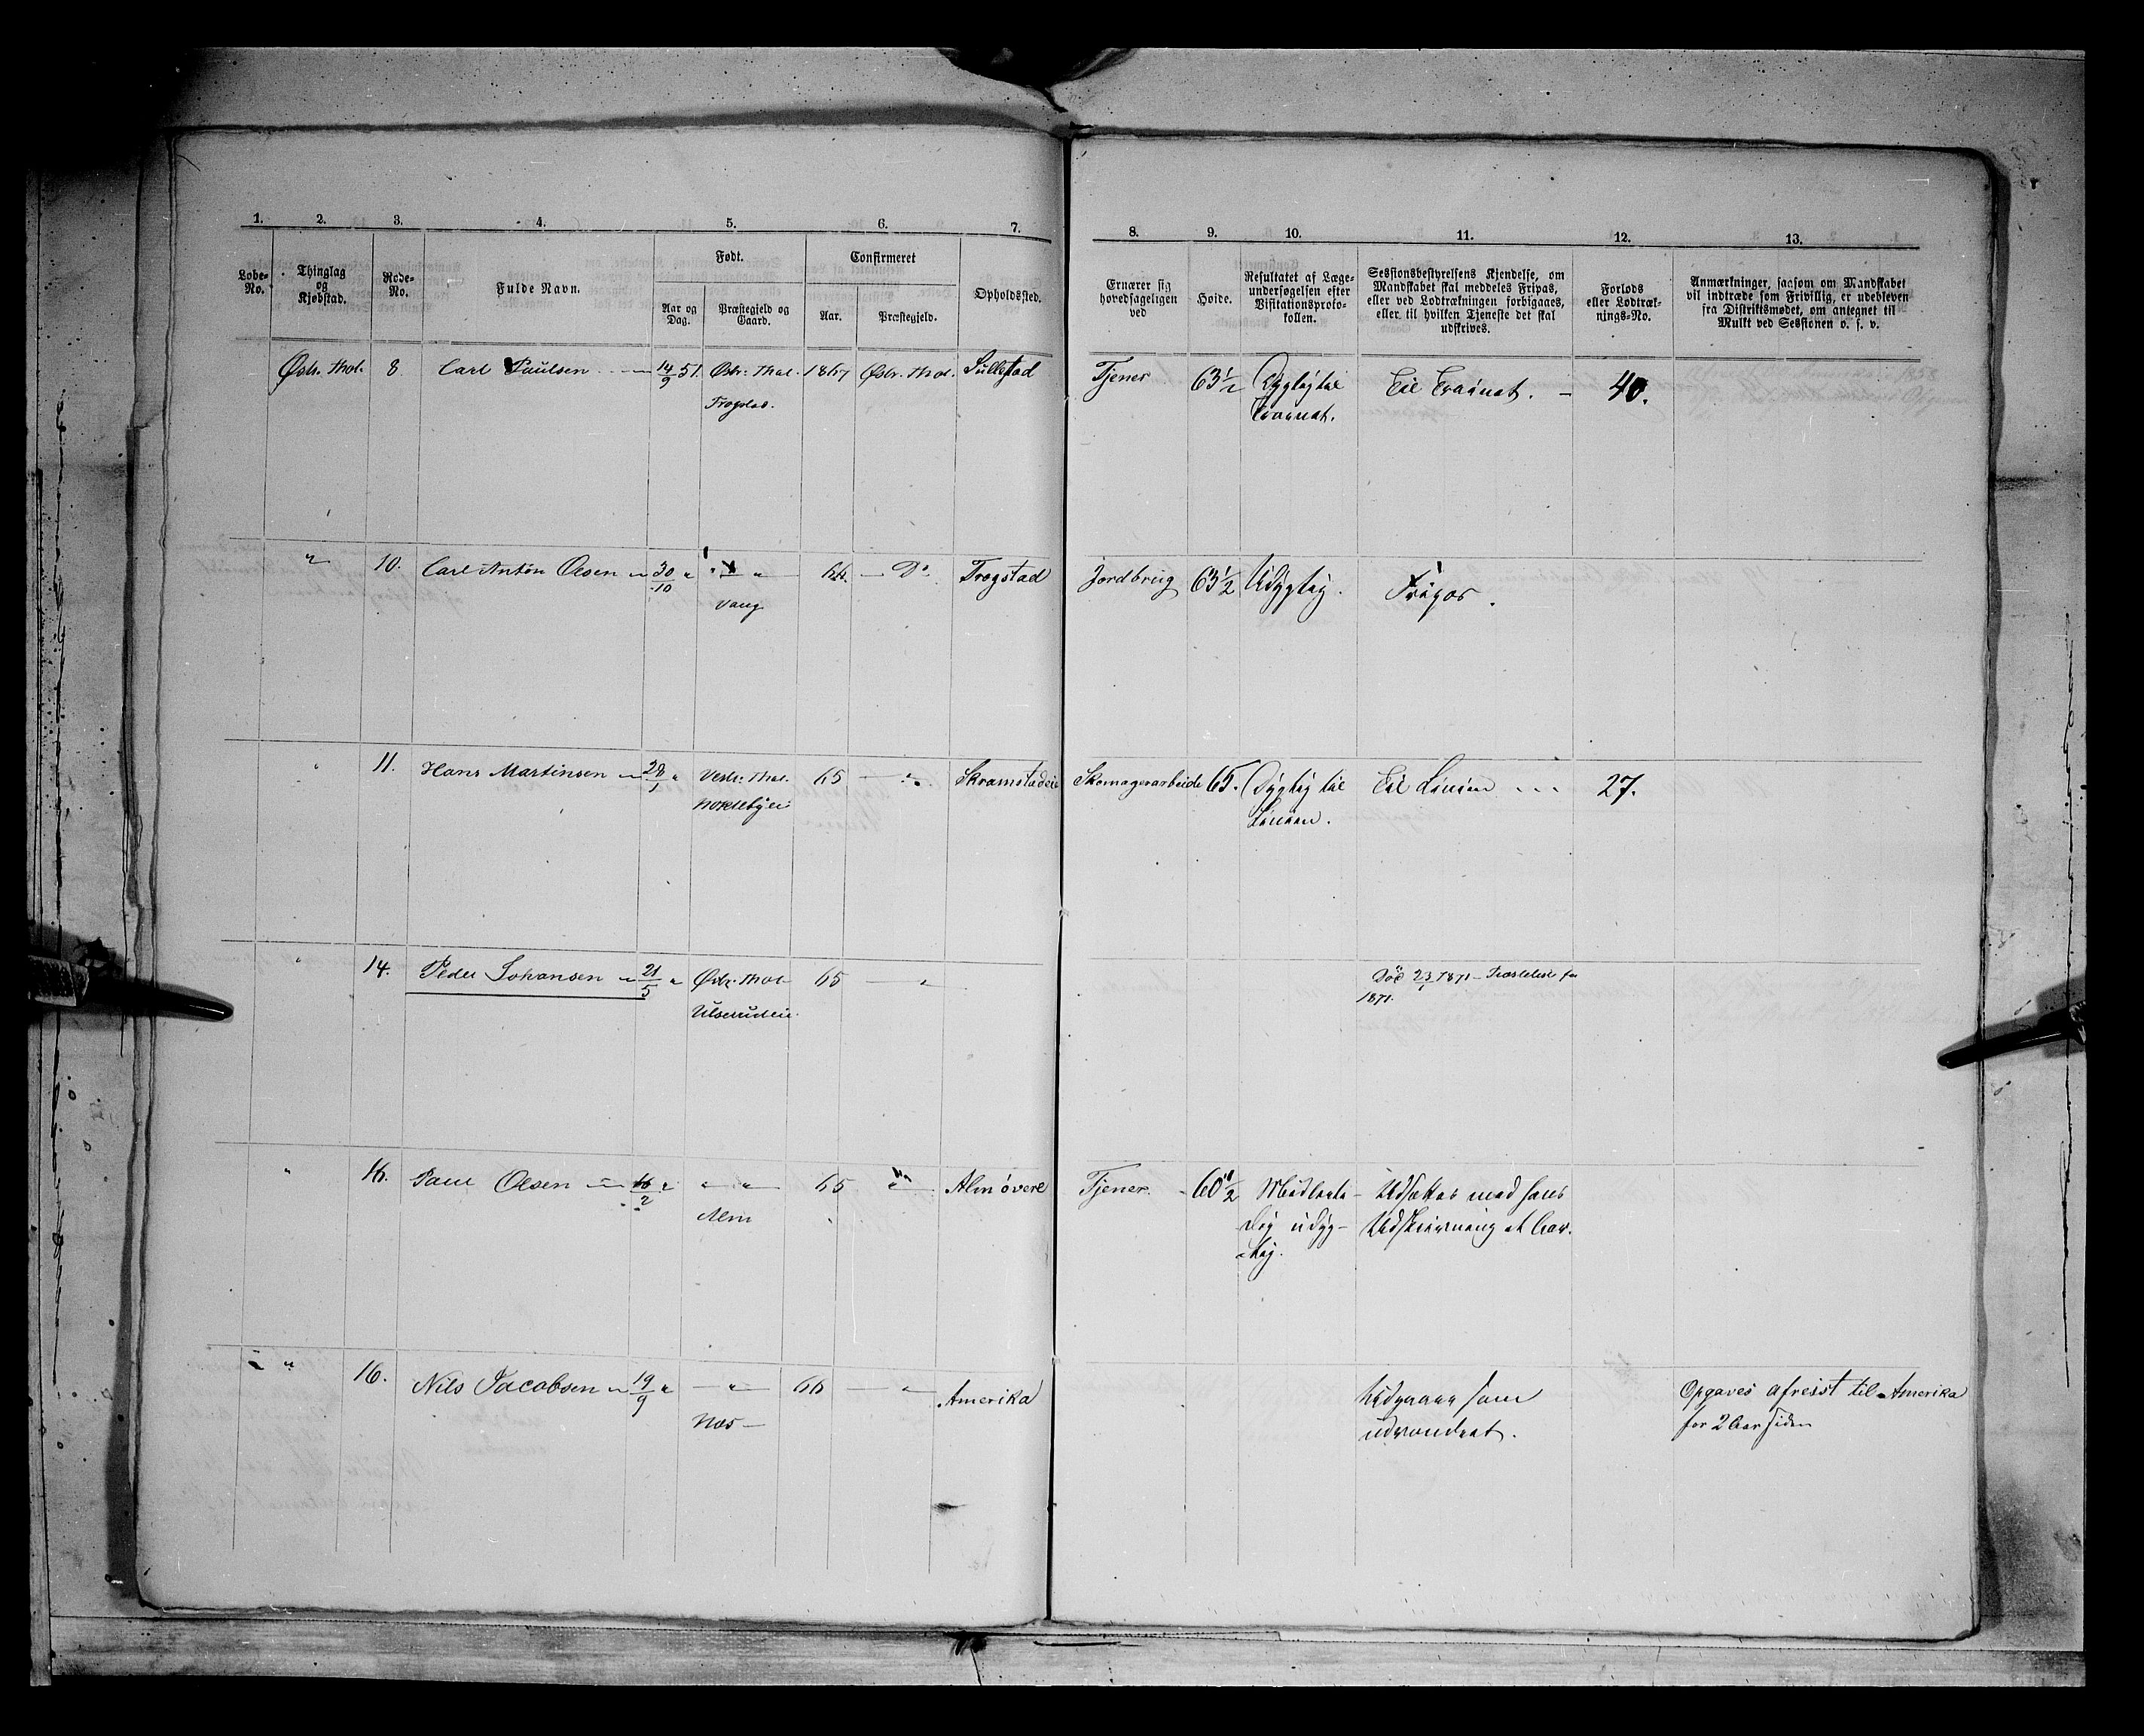 1. 2. 3. 4. 5. 6. 7. 8. 9. 10. 11. 12. 13.
Løbe-No.
Thinglag og Kjøbstad.
Rode-No.
Fulde Navn.
Født.
Aar og Dag.
Præstegjeld og Gaard.
Confirmeret
Aar.
Præstegjeld.
Opholdssted.
Ernærer sig hovedsageligen ved
Høide.
Resultatet af Læge-
undersøgelsen efter
Visitationsproto-
kollen.
Sessionsbestyrelsens Kjendelse, om
Mandskabet skal meddeles Fripas,
eller ved Lodtrækningen forbigaaes,
eller til hvilken Tjeneste det skal
udskrives.
Forlods
eller Lodtræk-
nings-No.
Anmærkninger, saasom om Mandskabet
vil indtræde som Frivillig, er udebleven
fra Distriktsmødet, om antegnet til
Mulkt ved Sessionen o. s. v.
Østr. Thot. 8 Carl Paulsen 14/9 51. Østr. Thot. 1867 Østr. Thot. Sullestad Tjener 63 1/2 Dygtig til Trainet. Til Trainet. 40.
Trogstad.
" 10. Carl Anton Olsen 30/10 " " 66. Do Trogstad Jordbrug 63 1/2 Udygtig. Fripas.
Vang
" 11. Hans Martinsen 28/1 " Vestr. Thot. 65 " Skramstadeie Skomagerarbeide 65. Dygtig til Linien. Til Linien 27.
" 14. Peder Johansen 21/5 " Østr. Thot. 65 " Død 23/1 1871 for
Ulserudeie 1871.
" 16. Paul Olsen 16/2 " " " 65 " Alm øvere Tjener 60 1/2 Midlerti- Udsættes med hans
Alm dig udyg- Udskrivning et Aar.
tig.
" 16. Nils Jacobsen 19/9 " " 66 " Amerika Udgaaer som Opgaves afreist til Amerika
Næs udvandret. for 2 Aar siden